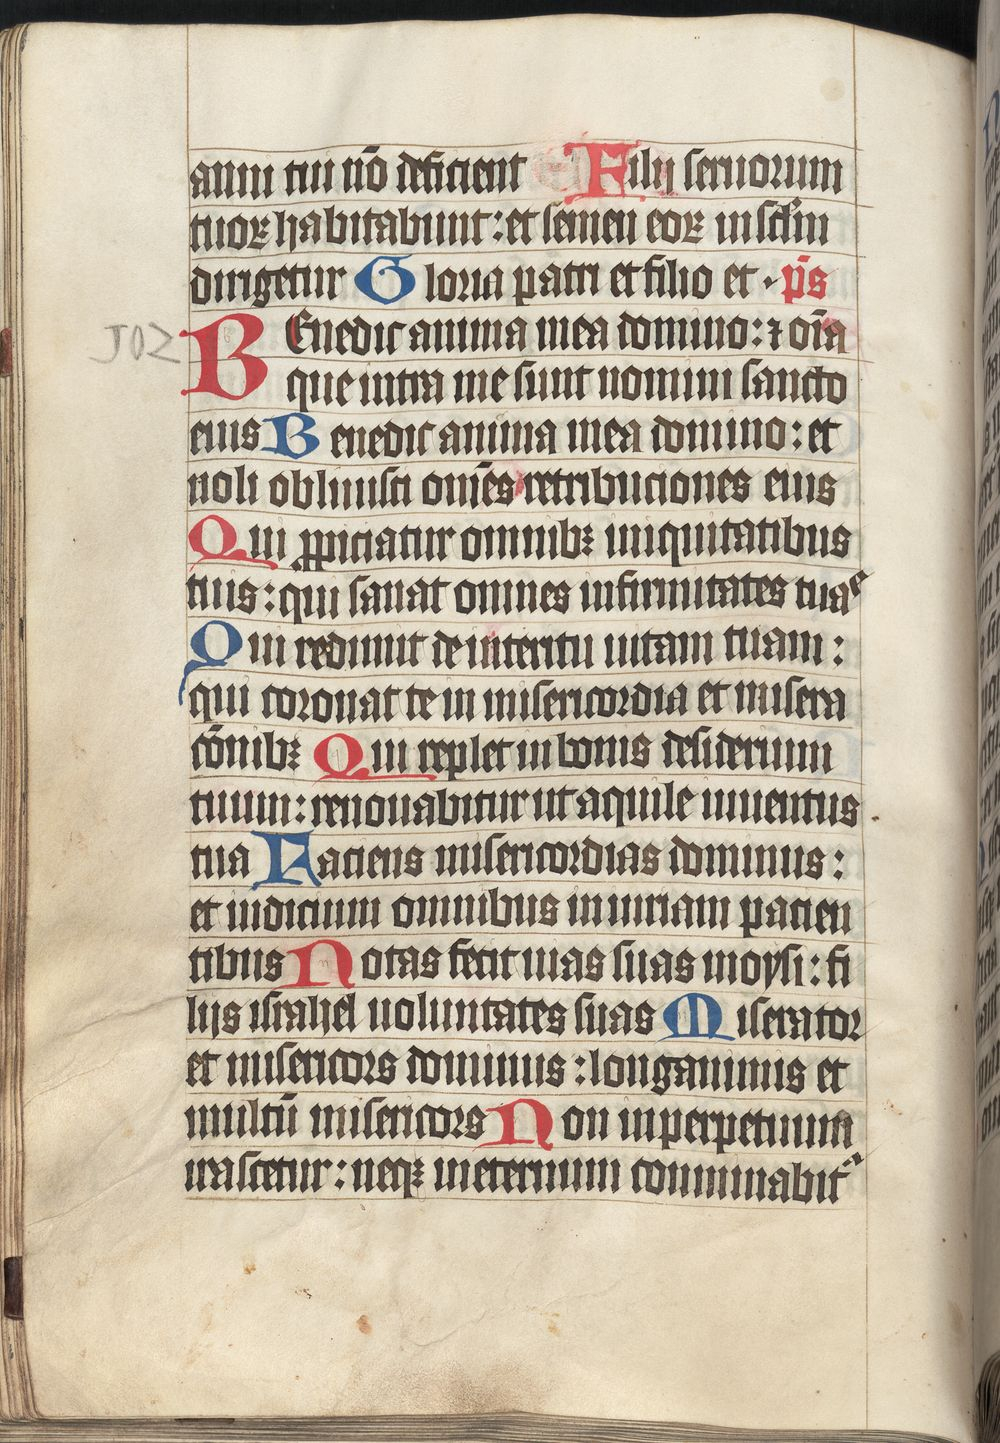 anni tui nō deficient Filij seruorum
tuoꝝ habitabunt: et semen eoꝝ in sclm̄
dirigetur Gloria patri et filio et · p̄s
102 Benedic anima mea domino: ⁊ oīa
que intra me sunt nomini sancto
eius Benedic anima mea domino: et
noli obliuisci om̄es retribuciones eius
Qui ꝓpiciatur omnibꝫ iniquitatibus
tuis: qui sanat omnes infirmitates tuas
Qui redimit de interitu uitam tuam:
qui coronat te in misericordia et misera
cōnibꝫ Qui replet in bonis desiderium
tuum: renouabitur ut aquile iuuentus
tua Faciens misericordias dominus:
et iudicium omnibus iniuriam pacien
tibus Notas fecit uias suas moysi: fi
lijs israhel uoluntates suas Miserator
et misericors dominus: longanimis et
multū misericors Non in perpetuum
irascetur: neqꝫ in eternum comminabit᷑